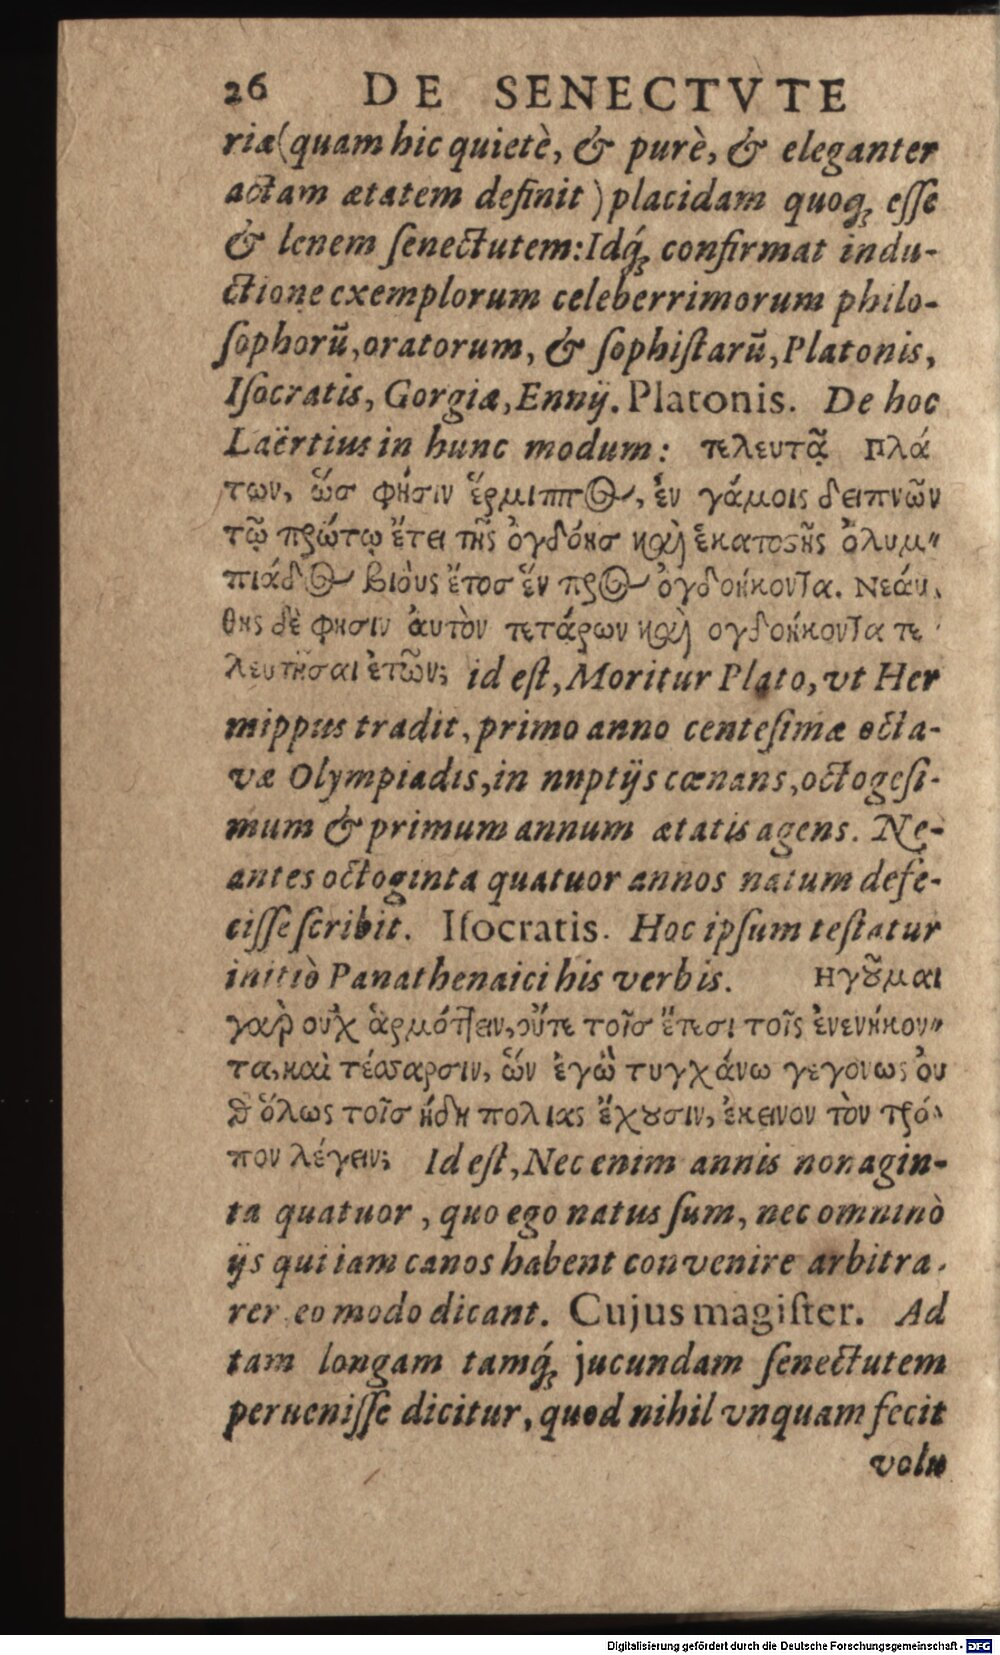 26 DE SENECTVTE
riæ (quam hic quietè, & purè, & eleganter
actam ætatem definit) placidam quoq; esse
& lenem senectutem: Idq́; confirmat indu-
ctione exemplorum celeberrimorum philo-
sophorũ, oratorum, & sophistarũ, Platonis,
Isocratis, Gorgiæ, Ennij. Platonis. De hoc
Laërtius in hunc modum: τελευτᾷ Πλά
των, ὥσ φήσιν ἕρμιππος, ἐν γάμοις δειπνῶν
τῷ πρώτῳ ἔτει τῆς ὀγδόησ καὶ ἑκατοςῆς ὀλυμ-
πιάδος βιοὺς ἔτοσ ἕν πρὸς ὀγδοήκοντα. Νεάν,
θης δὲ φησιν ἀυτὸν τετάρων καὶ ογδοήκοντα τε
λευτῆσαι ἐτῶν; id est, Moritur Plato, vt Her
mippus tradit, primo anno centesimæ octa-
væ Olympiadis, in nnptijs cœnans, octogesi-
mum & primum annum ætatis agens. Ne-
antes octoginta quatuor annos natum defe-
cisse scribit. Isocratis. Hoc ipsum testatur
initiò Panathenaici his verbis. Ηγοῦμαι
γαρ ουχ ἁρμότ]ειν, οὔτε τοῖσ ἔτεσι τοῖς ἐνενήκον-
τα, καὶ τέσσαρσιν, ὧν ἐγὼ τυγχάνω γεγονως ὀυ
δ ὅλως τοῖσ ἤδη πολιας ἔχουσιν, ἐκεινον τὸν τρό-
πον λέγειν; Id est, Nec enim annis nonagin-
ta quatuor, quo ego natus sum, nec omninò
ijs qui iam canos habent convenire arbitra-
rer eo modo dicant. Cujus magister. Ad
tam longam tamq́; jucundam senectutem
peruenisse dicitur, quod nihil vnquam fecit
volu
Digitalisierung gefördert durch die Deutsche Forschungsgemeinschaft - DFG